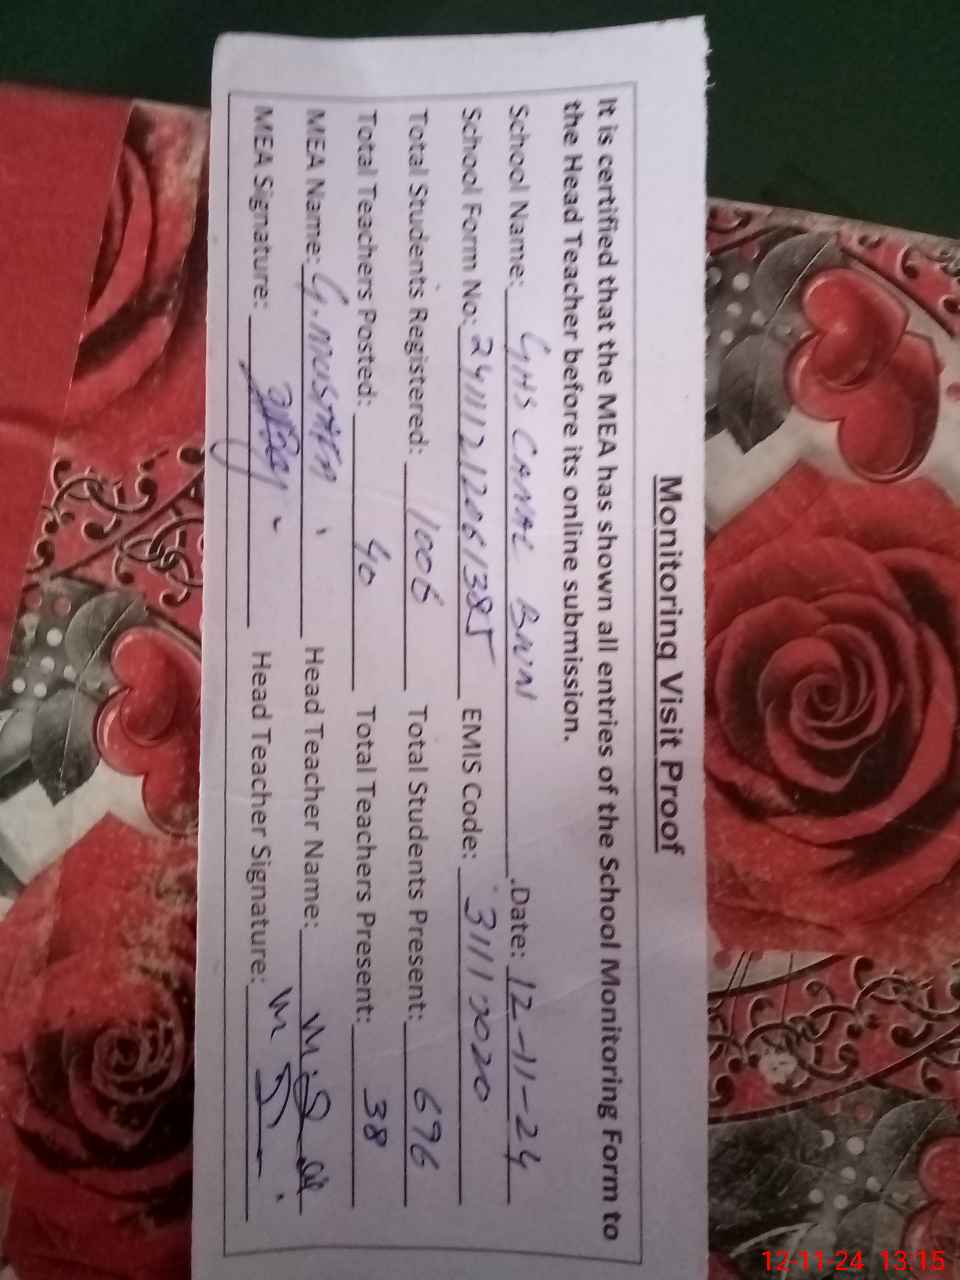 Monitoring Visit Proof
It is certified that the MEA has shown all entries of the School Monitoring Form to
the Head Teacher before its online submission.
School Name: GHS CANAL BWN .Date: 12-11-24
School Form No: 24111212061385 EMIS Code: 31110020
Total Students Registered: 1006 Total Students Present: 696
Total Teachers Posted: 40 Total Teachers Present: 38
MEA Name: G.MUSTAFA Head Teacher Name:
MEA Signature: Head Teacher Signature:
12-11-24 13:15